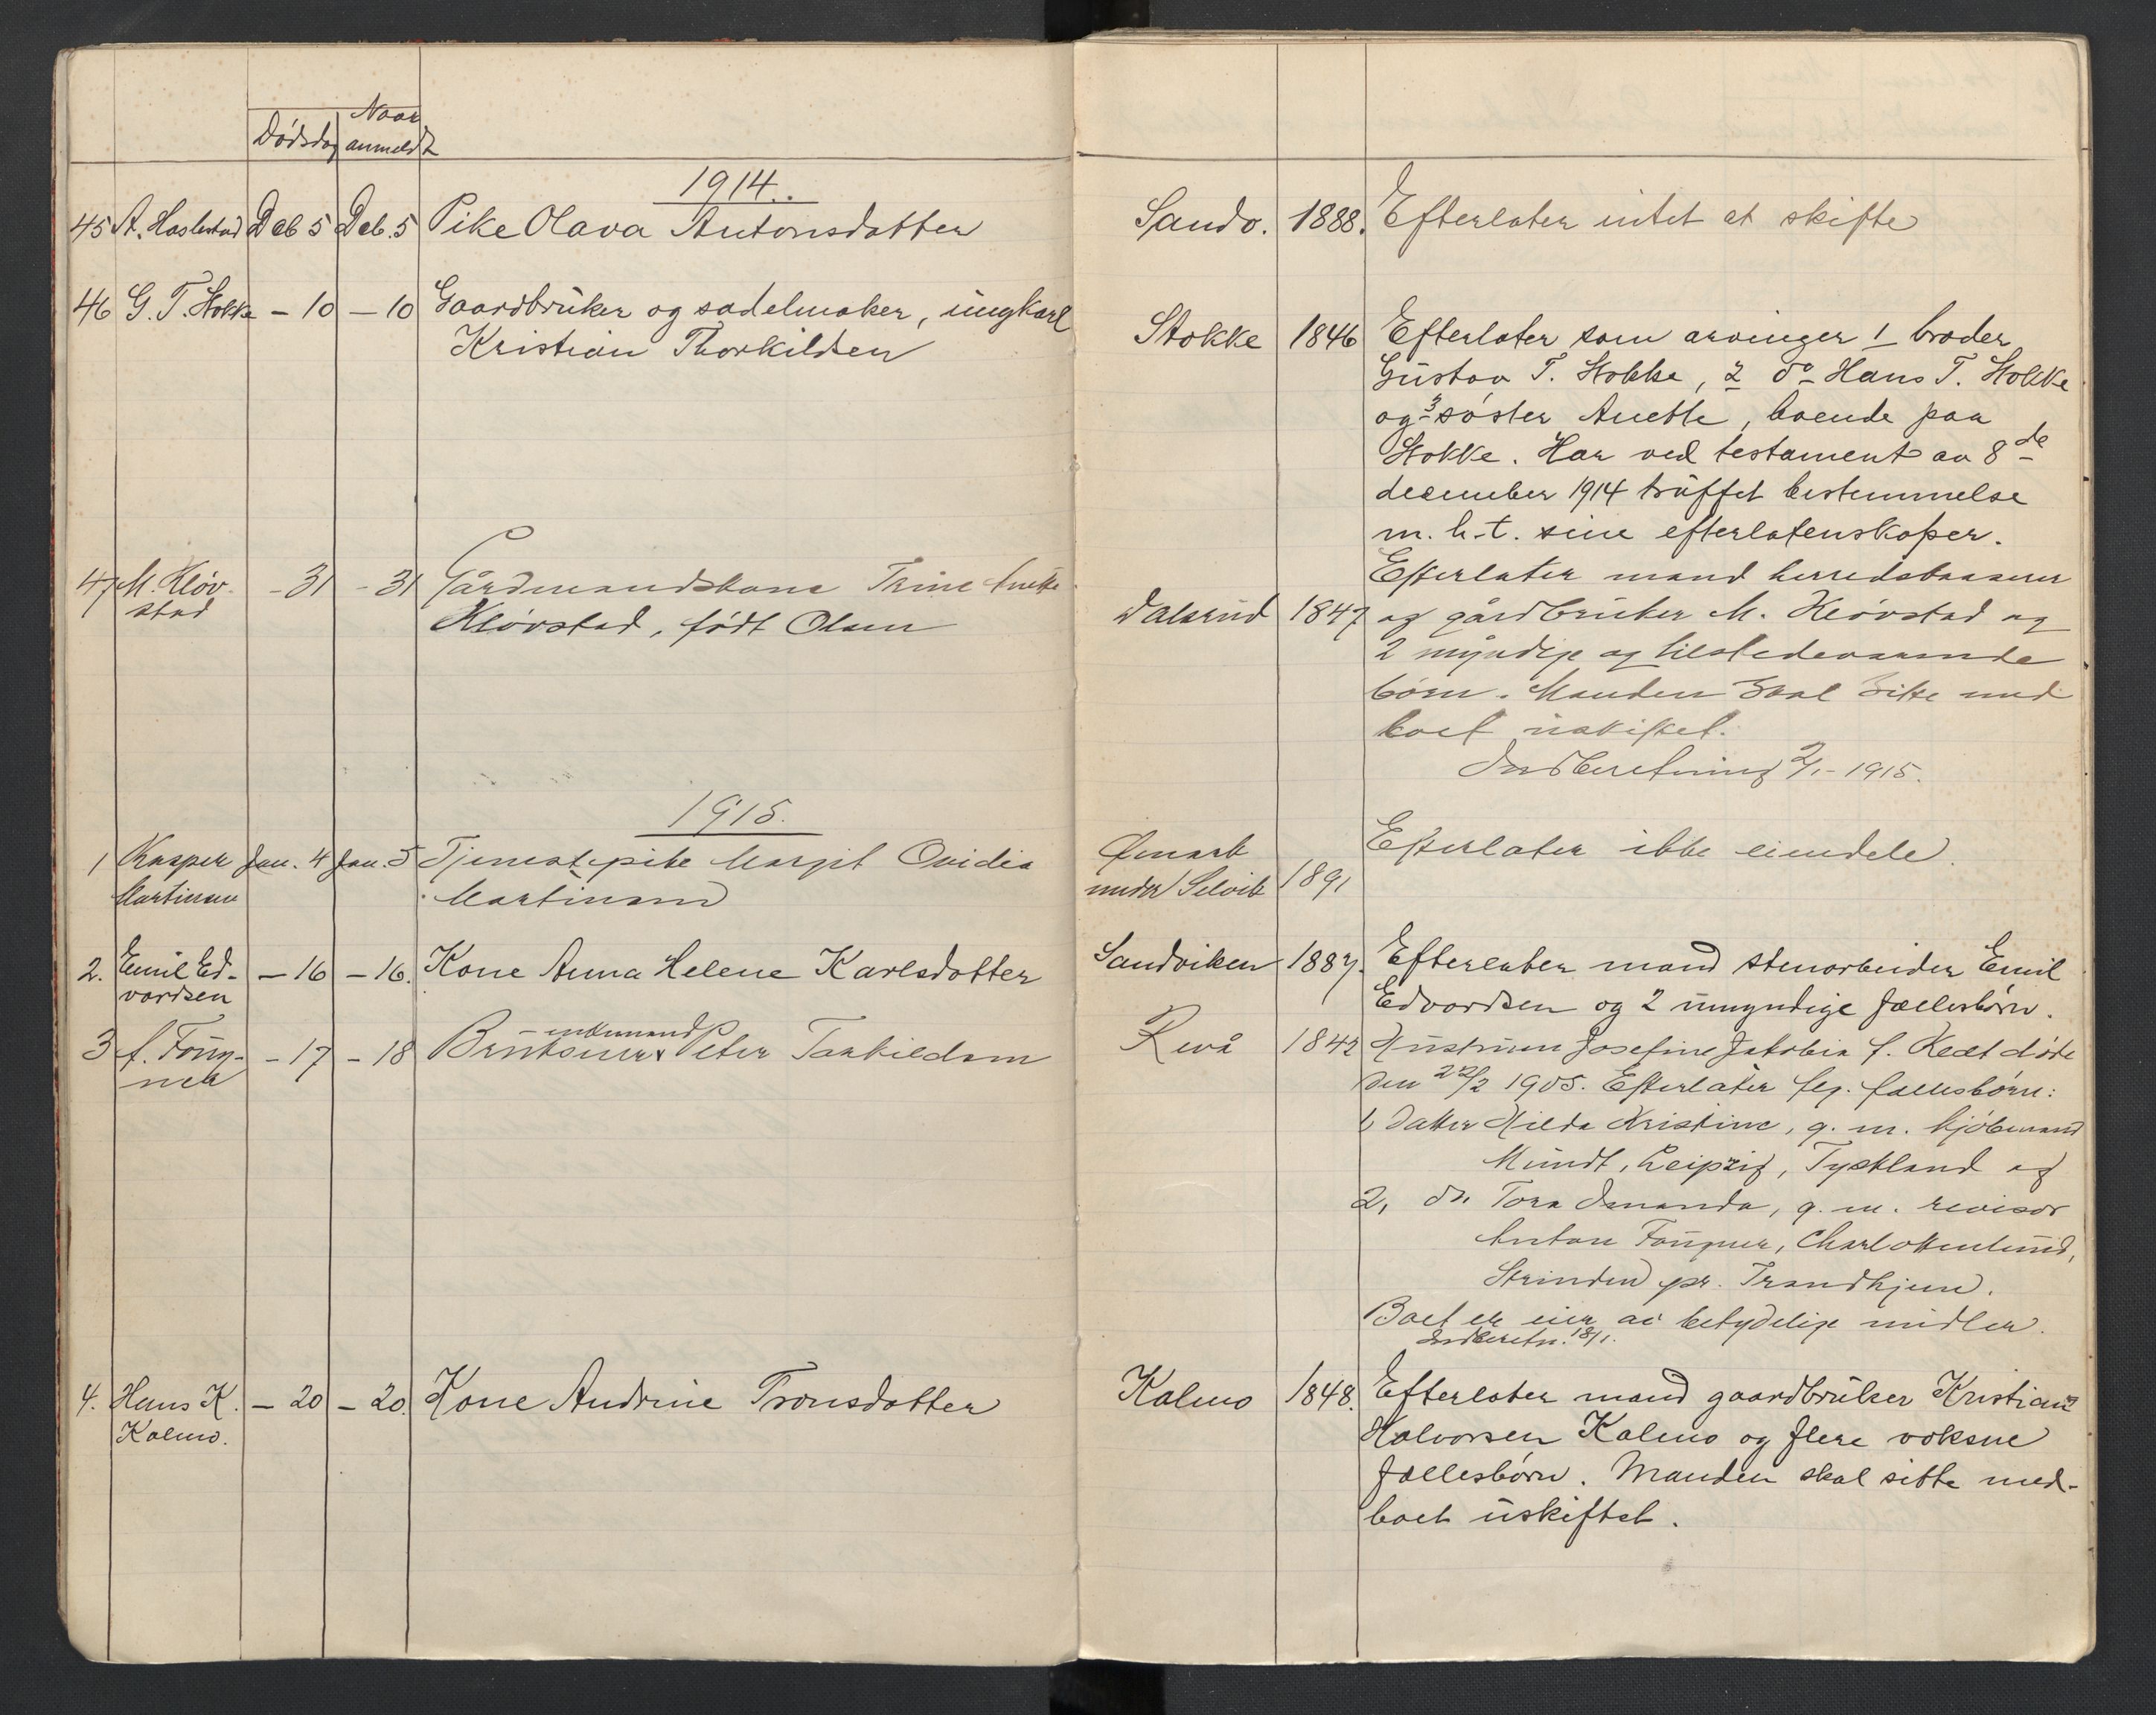 Naar
Dödsdag anmeldt
1914.
45 A. Haslestad Deb 5 Deb. 5 Pike Olava Antonsdatter Sandv. 1888. Efterlater intet at skifte
46 G. T. Stokke - 10 - 10 Gaardbruker og sadelmaker, ungkarl
Kristian Thorkildsen Stokke 1846 Efterlater som arvinger 1 broder
Gustav T. Stokke, 2 do Hans T. Stokke
og 3 söster Anette, boende paa
Stokke. Har ved testament av 8de
december 1914 truffet bestemmelse
m. h. t. sine efterlatenskaper.
47 M. Klöv- - 31 - 31 Gårdmandskone Trine Anette
stad Klövstad, födt Olsen
Efterlater mand herredskasserer
Dalsrud 1847 og gårdbruker M. Klövstad og
2 myndige og tilstedeværende
börn. Manden skal sitte med
boet uskiftet.
Indberetning 2/1-1915.
1915.
1 Kasper Jan. 4 Jan. 5 Tjenestepike Margit Ovidia
Martinsen Martinsen
under Selvik 1891 Efterlater ikke eiendele.
2. Emil Ed- - 16 - 16. Kone Anna Helene Karlsdatter
vardsen
Sandviken 1887. Efterlater mand stenarbeider Emil
Edvardsen og 2 umyndige fællesbörn.
3 A. Fougner - 17 - 18 enkemand
Peter Torkildsen
Revå 1842 Hustruen Josefine Jakobia f. döde
den 22/2 1905. Efterlater flg. fællesbörn:
1, Datter Hilda Kristine, g. m. kjöbmand
Mundt, Leipzig, Tyskland og
2, do. Tora Amanda, g. m. revisor
Anton Fougner, Charlottenlund,
Strinden pr. Trondhjem.
Boet er eier av betydelige midler.
Indberetn. 18/1.
4. Hans K. - 20 - 20. Kone Andrine Tronsdatter
Kalmo.
Kalmo 1848. Efterlater mand gaardbruker Kristian
Halvorsen Kalmo og flere voksne
fællesbörn. Manden skal sitte med-
boet uskiftet.